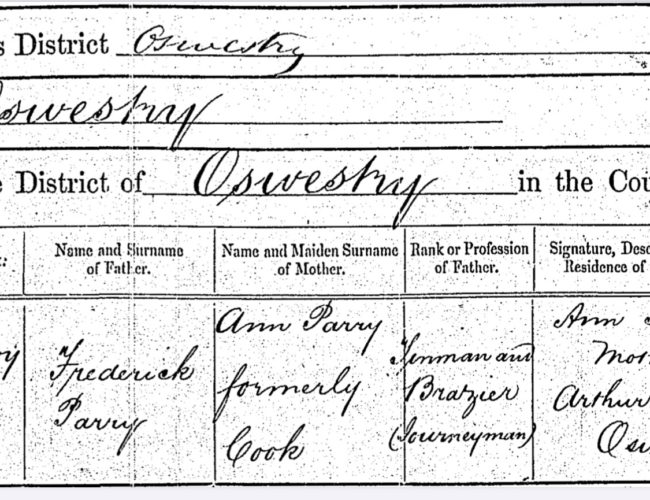 s District Oswestry
Oswestry
e District of Oswestry in the Cou
Name and Surname of Father.
Name and Maiden Surname of Mother.
Rank or Profession of Father.
Signature, Desc
Residence of
Frederick
Parry
Ann Parry
formerly
Cook
Tinman and
Brazier
(Journeyman)
Ann
Mo
Arthur
Osw